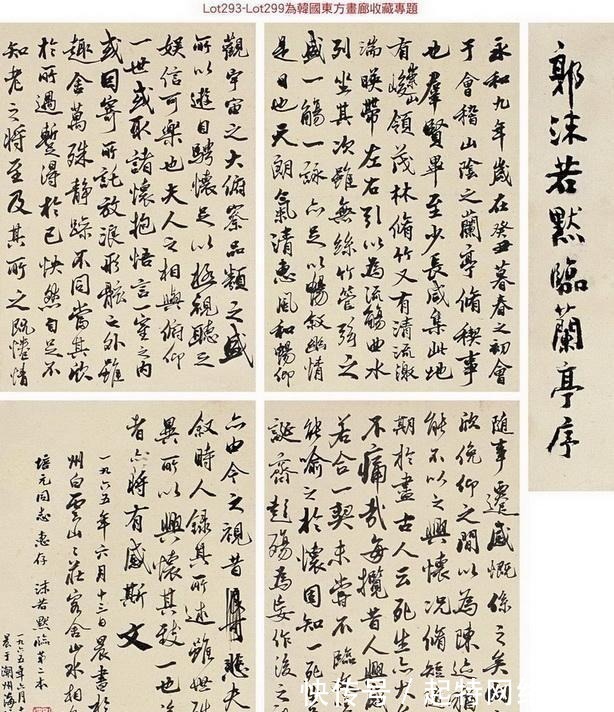 Lot293-Lot299為韓國東方畫廊收藏專題
郭沫若默臨蘭亭序
永和九年歲在癸丑暮春之初會
于會稽山陰之蘭亭脩稧事
也羣賢畢至少長咸集此地
有崇山峻領茂林脩竹又有清流激
湍暎帶左右引以為流觴曲水
列坐其次雖無絲竹管弦之
盛一觴一詠亦足以暢敘幽情
是日也天朗氣清惠風和暢仰
觀宇宙之大俯察品類之盛
所以遊目騁懷足以極視聽之
娛信可樂也夫人之相與俯仰
一世或取諸懷抱悟言一室之內
或因寄所託放浪形骸之外雖
趣舍萬殊靜躁不同當其欣
於所遇蹔得於己快然自足不
知老之將至及其所之既惓情
隨事遷感慨係之矣
欣俛仰之間以為陳迹
能不以之興懷況脩短
期於盡古人云死生亦大
不痛哉每攬昔人興
若合一契未嘗不臨
能喻之於懷固知一死
誕齊彭殤為妄作後之
亦由今之視昔悲夫
敘時人錄其所述雖世殊
異所以興懷其致一也
者亦將有感斯文
一九六五年六月十三日晨書於
州白雲山山莊客舍山水相
培元同志惠存 沫若默臨第二本
一九六五年六月
晨于潮州海
快传号 / 起特网